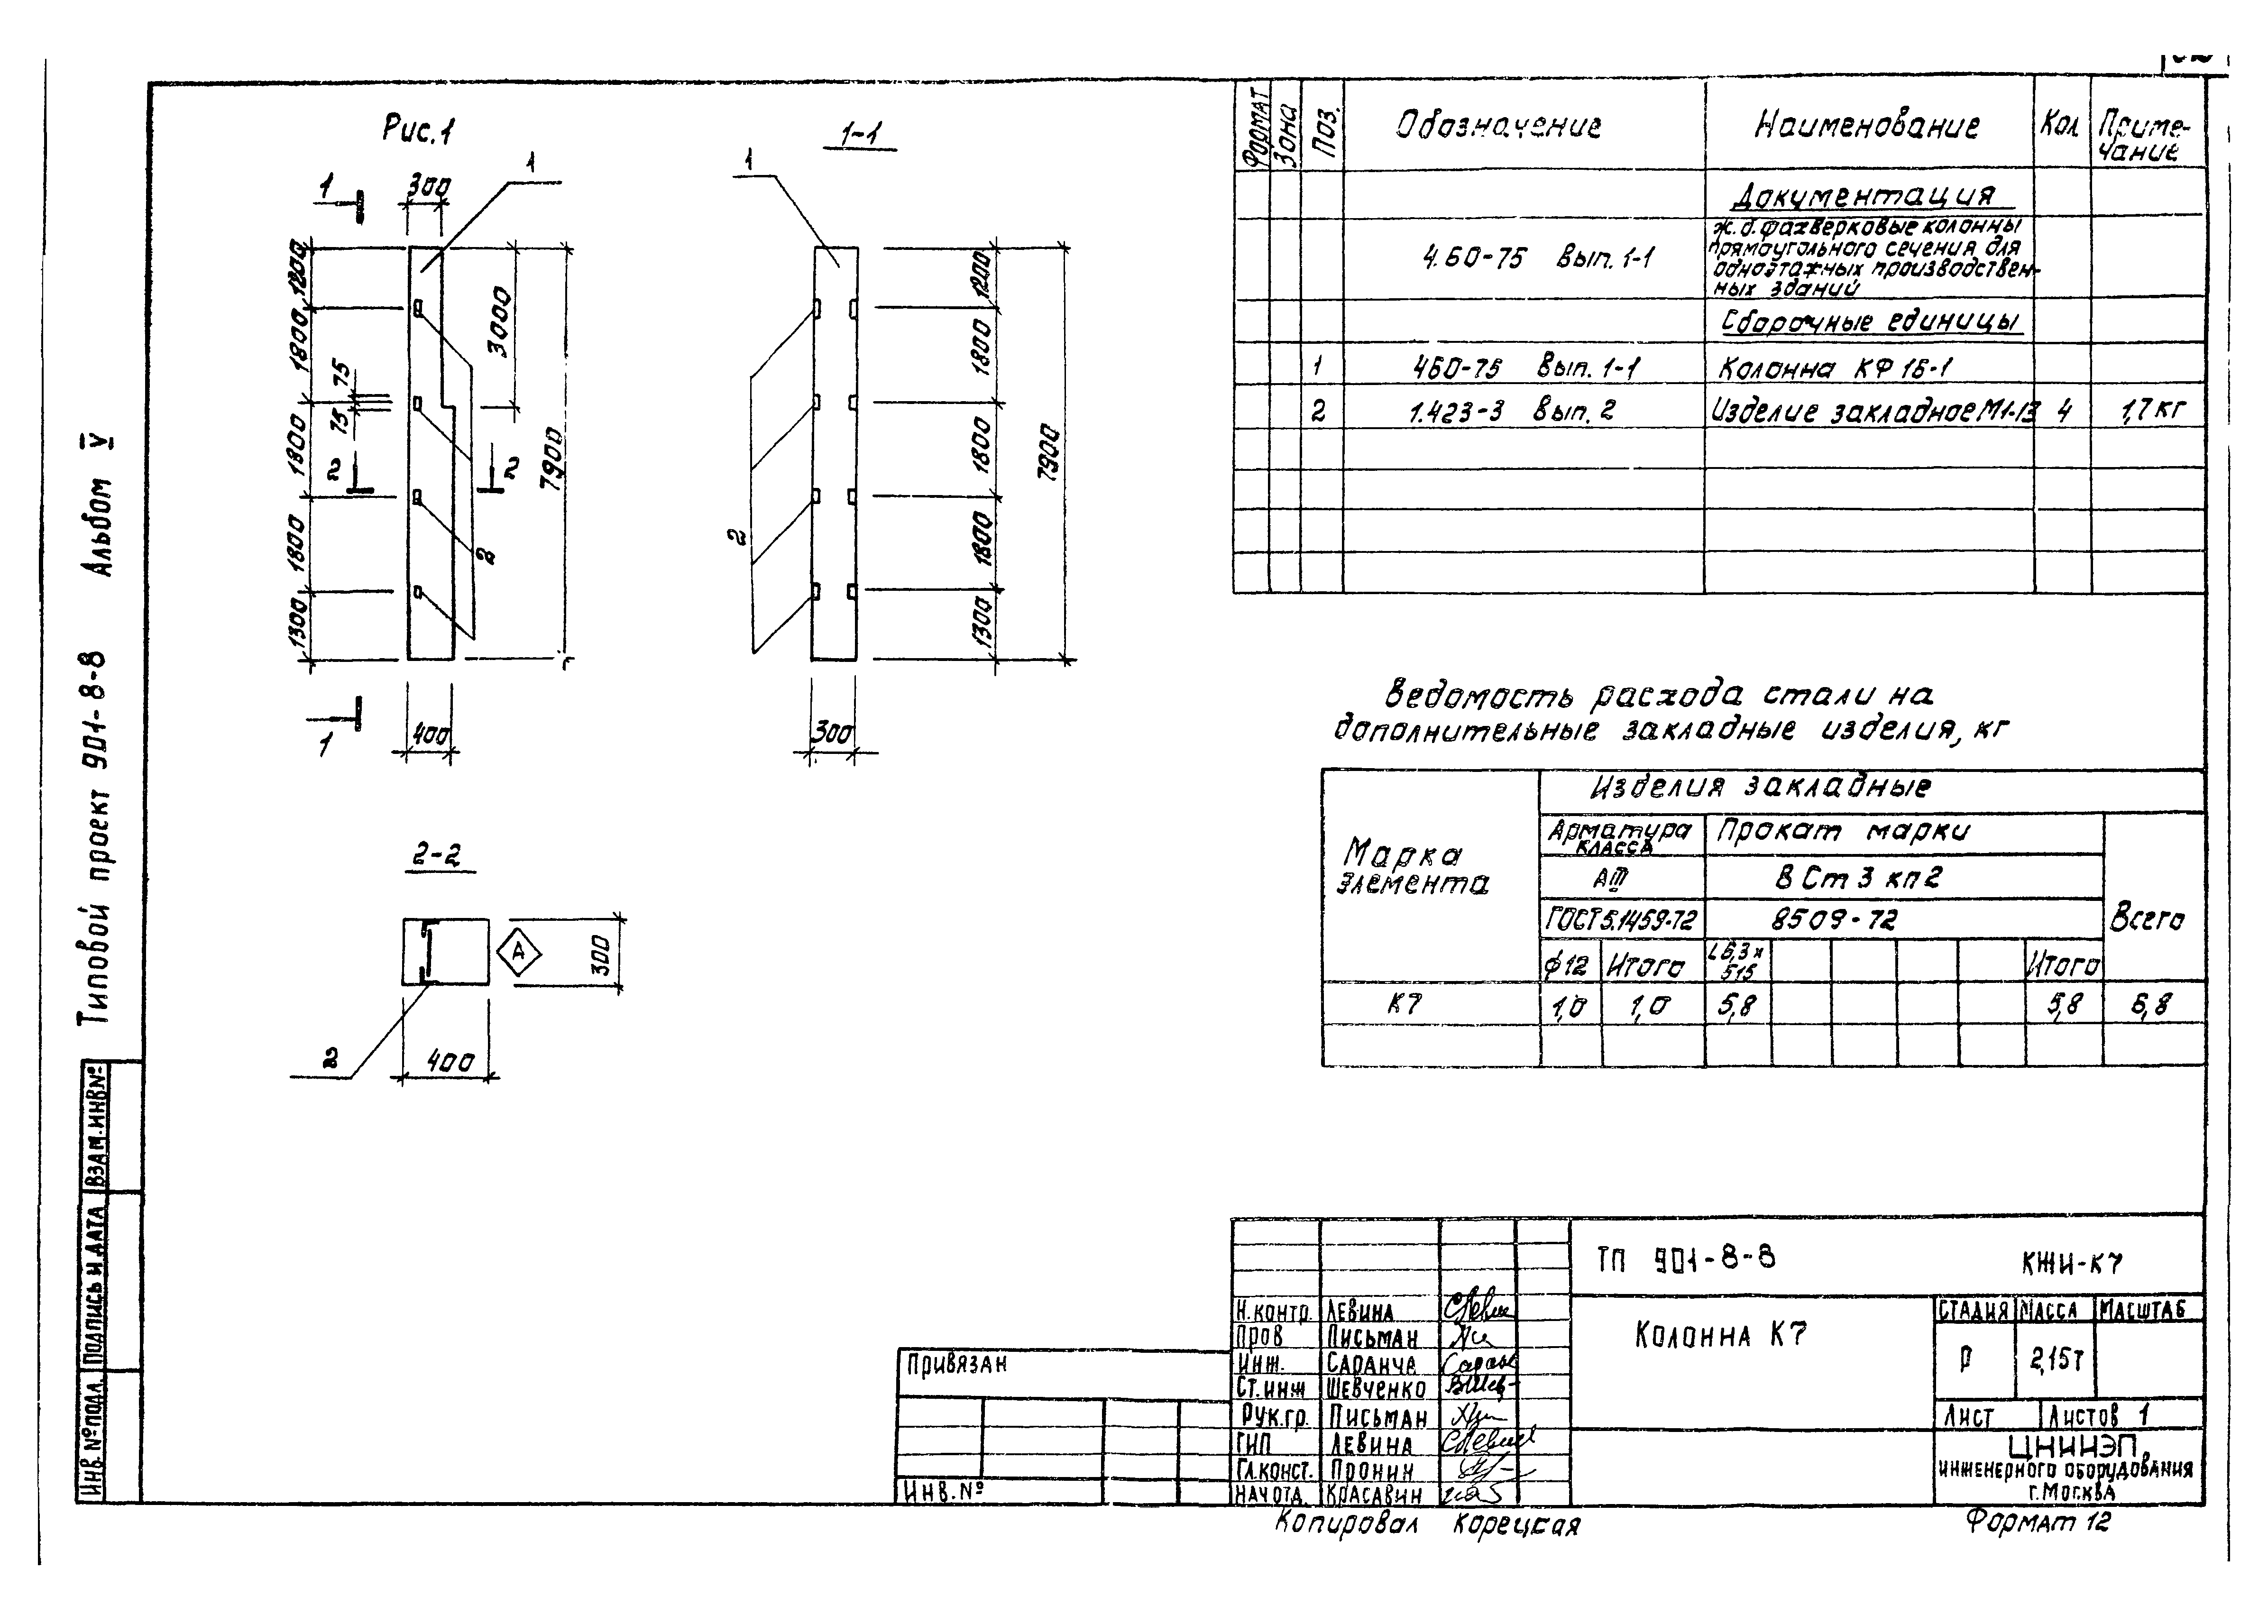 Рис.1
1
1
300
1200
1800
75
75
1800
1800
1300
3000
7900
2
2
2
1
400
1-1
1
2
1200
1800
1800
1800
1300
7900
300
2-2
А
300
2
400
Формат
Зона
Поз.
Обозначение
Наименование
Кол
Приме-
чание
Документация
4.60-75 Вып. 1-1
ж.б. фахверковые колонны
прямоугольного сечения для
одноэтажных производствен-
ных зданий
Сборочные единицы
1 460-75 Вып. 1-1 Колонна КФ 16-1
2 1.423-3 Вып. 2 Изделие закладное М1-13 4 1,7 кг
Ведомость расхода стали на
дополнительные закладные изделия, кг
Марка
элемента
Изделия закладные
Арматура
класса
Прокат марки
АIII
В Ст 3 кп 2
ГОСТ 5.1459-72
8509-72
Всего
ф12 Итого
Итого
К7 1,0 1,0 5,8 5,8 6,8
Типовой проект 901-8-8 Альбом V
Взам.инв№
Подпись и дата
Инв.№подл.
ТП 901-8-8 КЖИ-К7
Колонна К7
Стадия Масса Масштаб
Р 2,15т
Лист Листов 1
ЦНИИЭП
инженерного оборудования
г.Москва
Н.контр. Левина
Пров Письман
Инж. Саранча
Ст.инж Шевченко
Рук.гр. Письман
ГИП Левина
Гл.конст. Пронин
Нач отд Красавин
Привязан
Инв.№
Копировал Корецкая
Формат 12